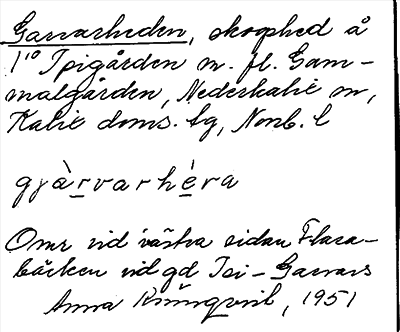 Garvarheden, skoghed å
1¹⁰ Ipigården m. fl. Gam-
malgården, Nederkalix sn,
Kalix doms. lg, Norrb. l
gyàrvarhèra
Omr vid västra sidan Flara-
bäcken vid gd Isi-Garvars
Anna Krünqvist, 1951